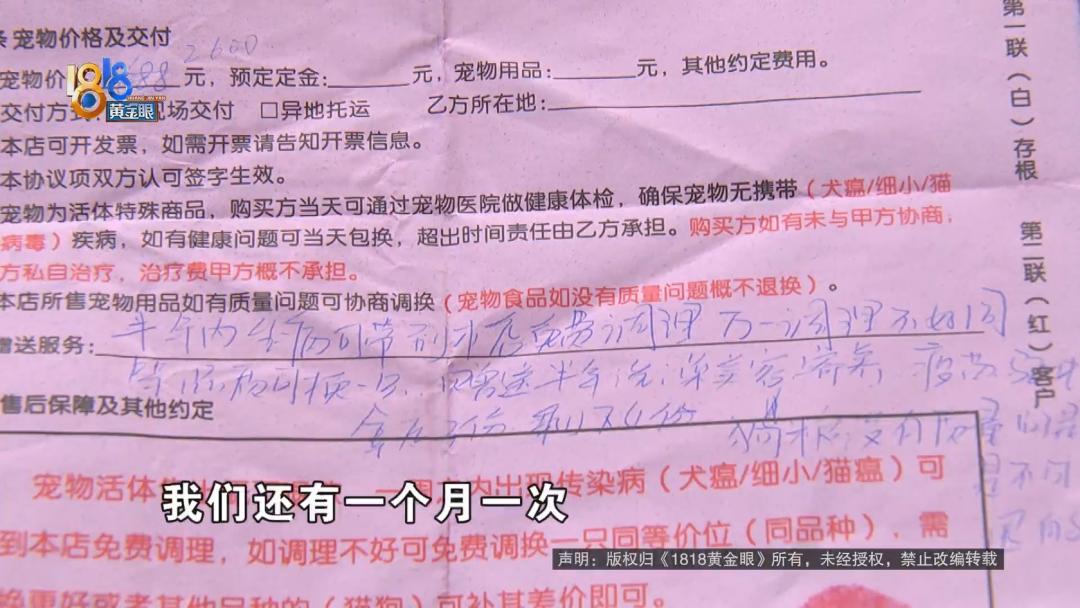 条 宠物价格及交付
2600
宠物价 688 元，预定定金：元，宠物用品：元，其他约定费用。
交付方式 现场交付 □异地托运 乙方所在地：
本店可开发票，如需开票请告知开票信息。
本协议项双方认可签字生效。
宠物为活体特殊商品，购买方当天可通过宠物医院做健康体检，确保宠物无携带（犬瘟/细小/猫
病毒）疾病，如有健康问题可当天包换，超出时间责任由乙方承担。购买方如有未与甲方协商，
方私自治疗，治疗费甲方概不承担。
本店所售宠物用品如有质量问题可协商调换（宠物食品如没有质量问题概不退换）。
赠送服务：半年内生病可带到本店免费调理 万一调理不好同
可换一只 半年洗澡美容寄养 疫苗
售后保障及其他约定
没有
宠物活体 内出现传染病（犬瘟/细小/猫瘟）可
到本店免费调理，如调理不好可免费调换一只同等价位（同品种），需
换更好或者其他品种的（猫狗）可补其差价即可。
第一联（白）存根 第二联（红）客户
1818
黄金眼
我们还有一个月一次
声明：版权归《1818黄金眼》所有，未经授权，禁止改编转载